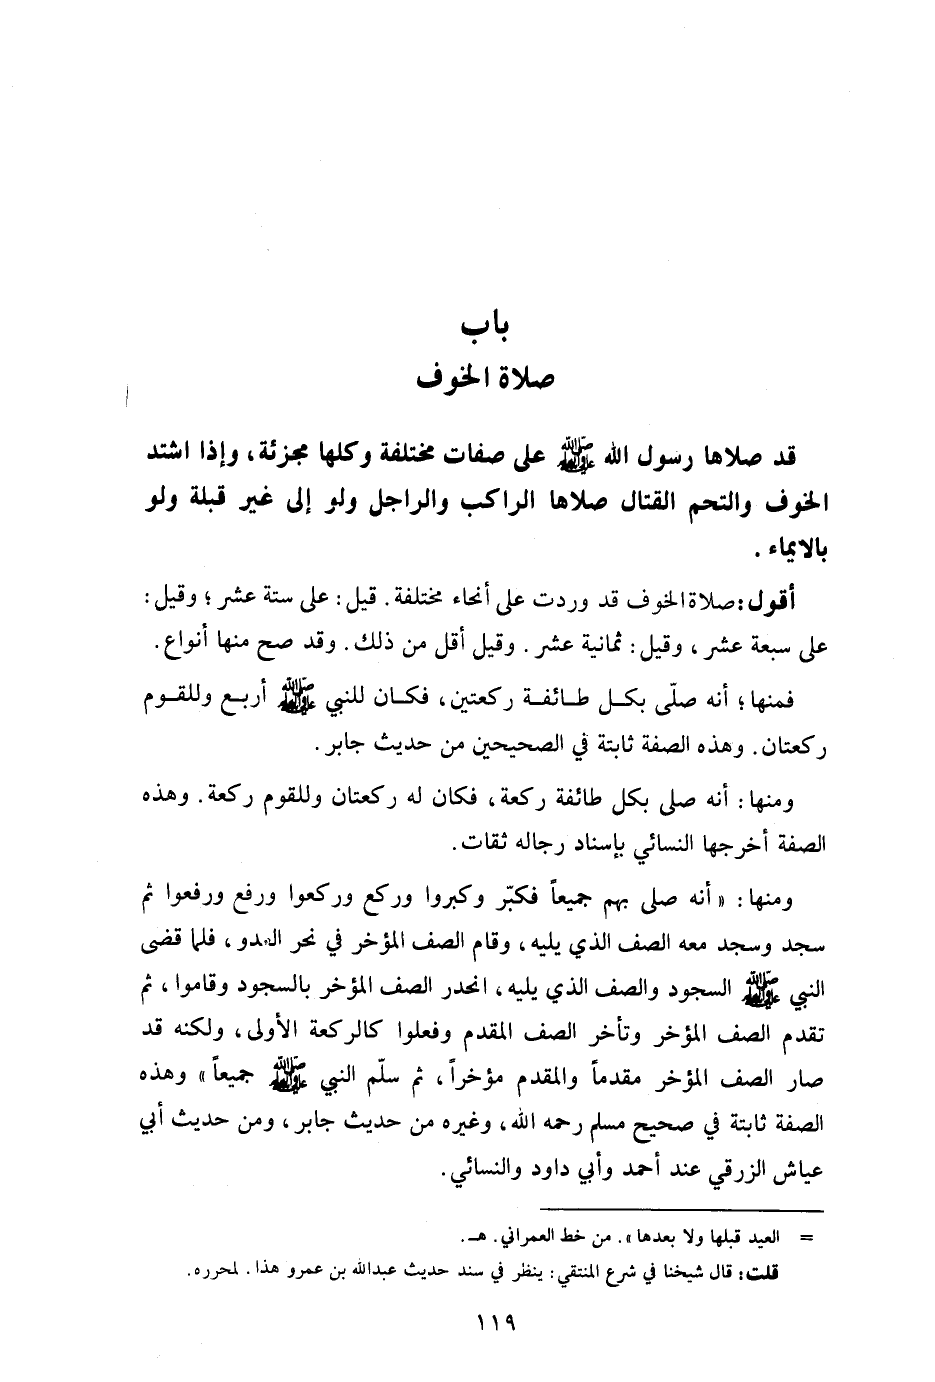 باب
صلاة الخوف
قد صلاها رسول الله ﷺ على صفات مختلفة وكلها مجزئة، وإذا اشتد
الخوف والتحم القتال صلاها الراكب والراجل ولو إلى غير قبلة ولو
بالايماء .
أقول: صلاة الخوف قد وردت على أنحاء مختلفة. قيل: على ستة عشر؛ وقيل:
على سبعة عشر، وقيل: ثمانية عشر. وقيل أقل من ذلك. وقد صح منها أنواع.
فمنها؛ أنه صلّى بكل طائفة ركعتين، فكان للنبي ﷺ أربع وللقوم
ركعتان. وهذه الصفة ثابتة في الصحيحين من حديث جابر.
ومنها: أنه صلى بكل طائفة ركعة، فكان له ركعتان وللقوم ركعة. وهذه
الصفة أخرجها النسائي بإسناد رجاله ثقات.
ومنها: «أنه صلى بهم جميعاً فكبّر وكبروا وركع وركعوا ورفع ورفعوا ثم
سجد وسجد معه الصف الذي يليه، وقام الصف المؤخر في نحر العدو، فلما قضى
النبي ﷺ السجود والصف الذي يليه، انحدر الصف المؤخر بالسجود وقاموا، ثم
تقدم الصف المؤخر وتأخر الصف المقدم وفعلوا كالركعة الأولى، ولكنه قد
صار الصف المؤخر مقدماً والمقدم مؤخراً، ثم سلّم النبي ﷺ جميعاً» وهذه
الصفة ثابتة في صحيح مسلم رحمه الله، وغيره من حديث جابر، ومن حديث أبي
عياش الزرقي عند أحمد وأبي داود والنسائي.
= العيد قبلها ولا بعدها». من خط العمراني. هـ.
قلت: قال شيخنا في شرع المنتقي: ينظر في سند حديث عبدالله بن عمرو هذا. لمحرره.
١١٩